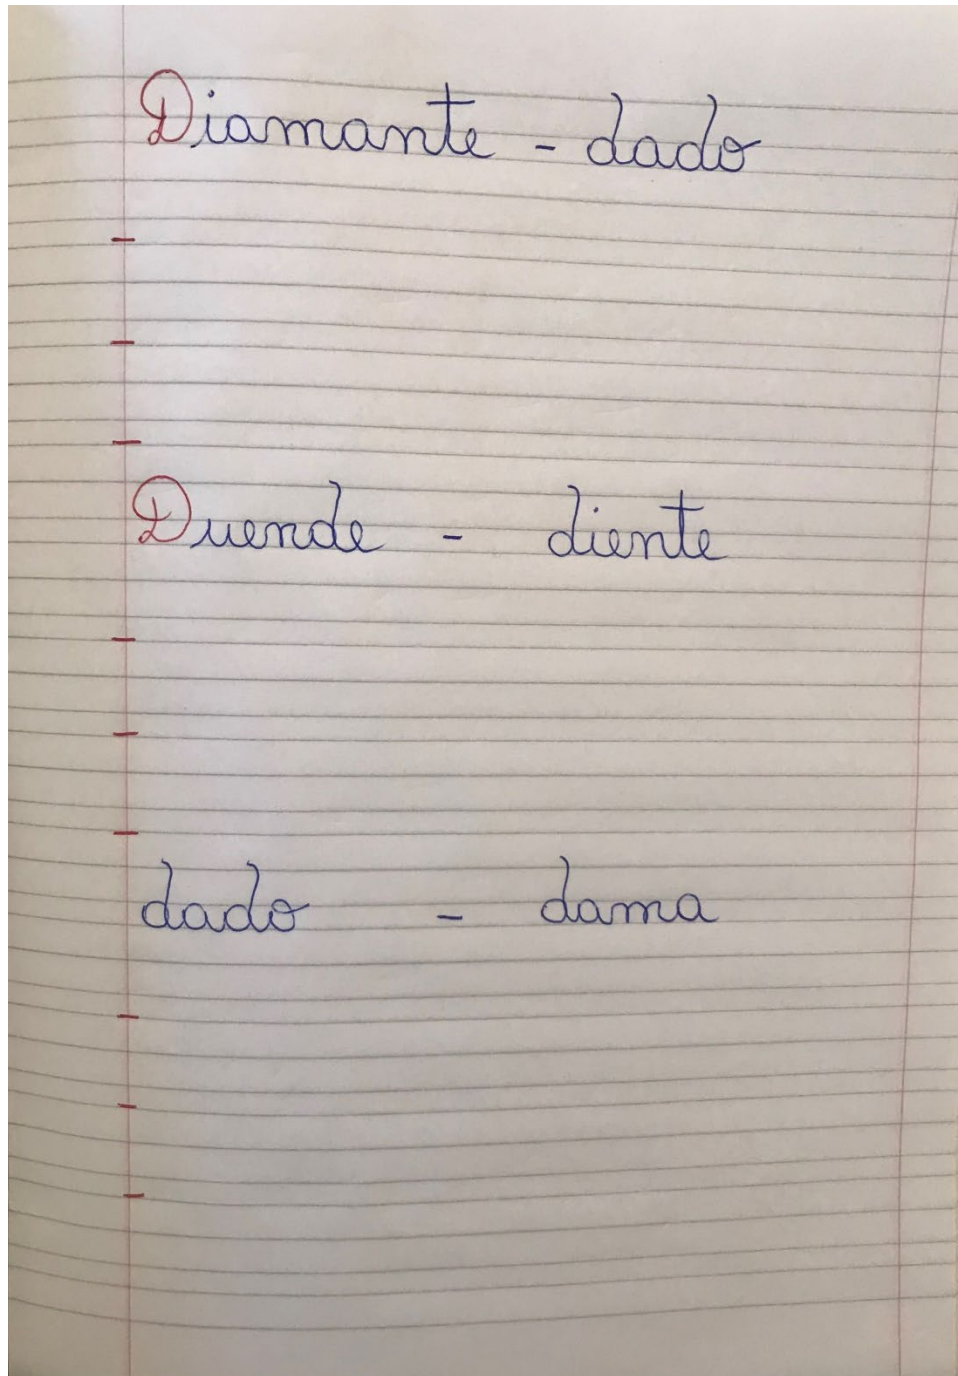 Diamante - dado
Duende - diente
dado - dama